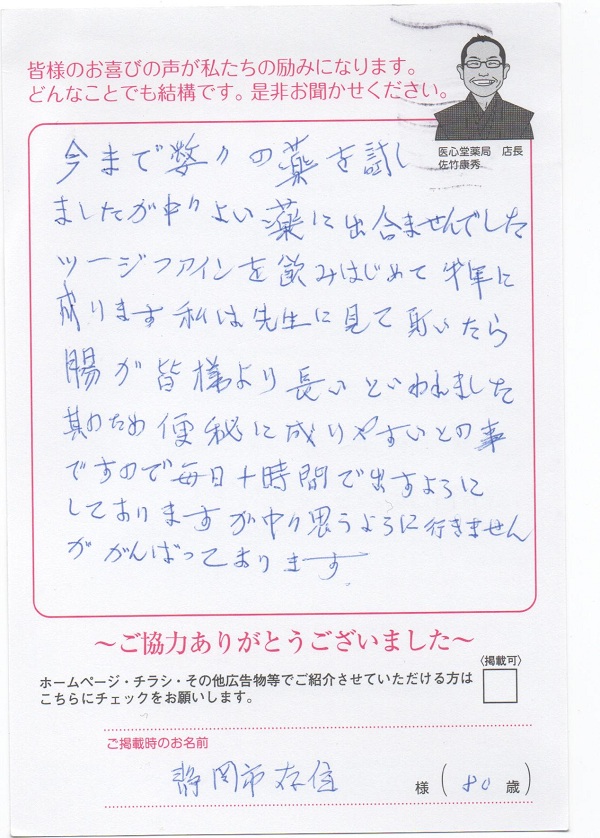 皆様のお喜びの声が私たちの励みになります。
どんなことでも結構です。是非お聞かせください。
医心堂薬局 店長
佐竹康秀
今まで数々の薬を試し
ましたが中々よい薬に出合ませんでした
ツージファインを飲みはじめて半年に
成ります私は先生に見て頂いたら
腸が皆様より長いといわれました
其のため便秘に成りやすいとの事
ですので毎日十時間で出すように
しておりますが中々思うように行きません
ががんばっております
〜ご協力ありがとうございました〜
〈掲載可〉
ホームページ・チラシ・その他広告物等でご紹介させていただける方は
こちらにチェックをお願いします。
ご掲載時のお名前
静岡市在住 様 (80歳)